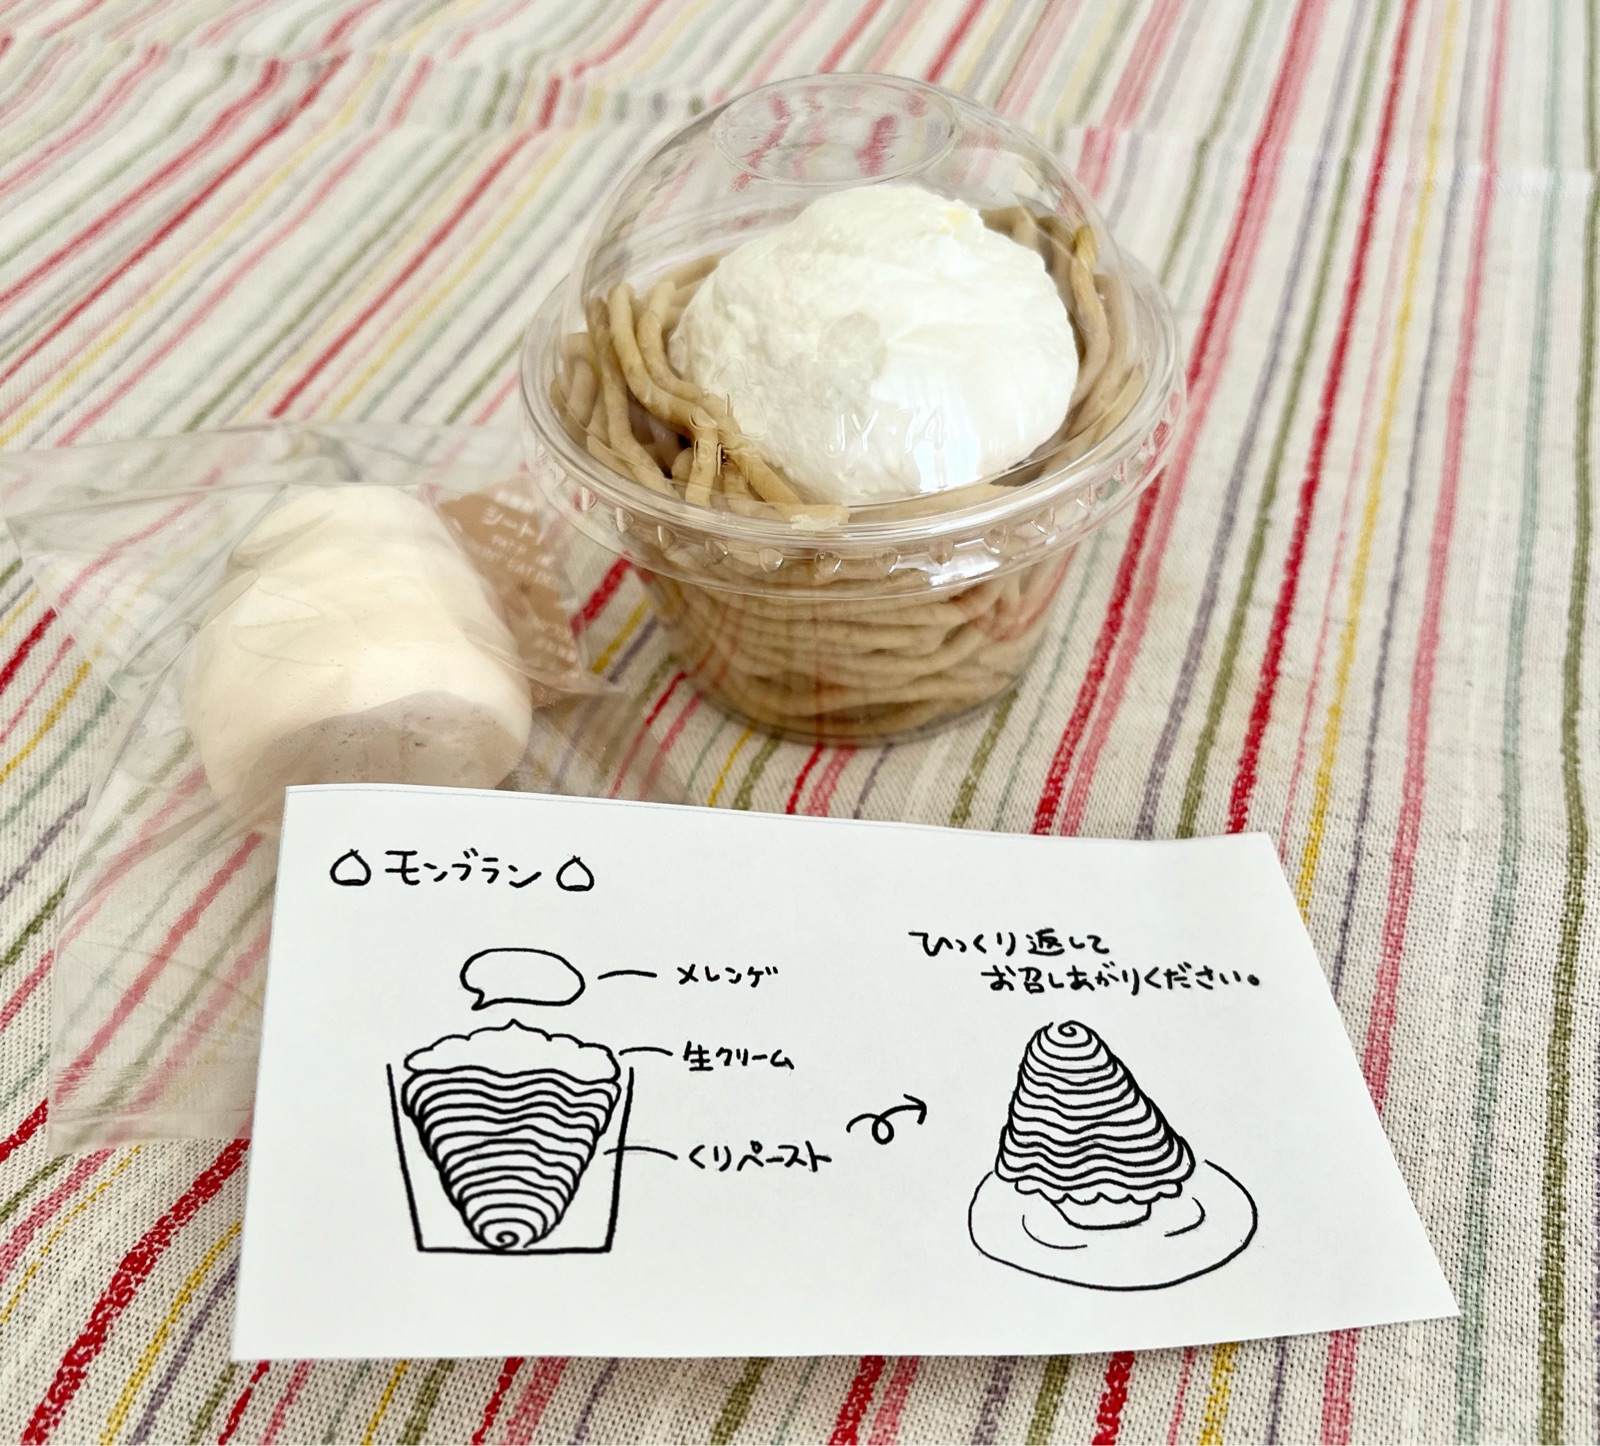 JY 74
シート
モンブラン
メレンゲ
生クリーム
くりペースト
ひっくり返して
お召しあがりください。